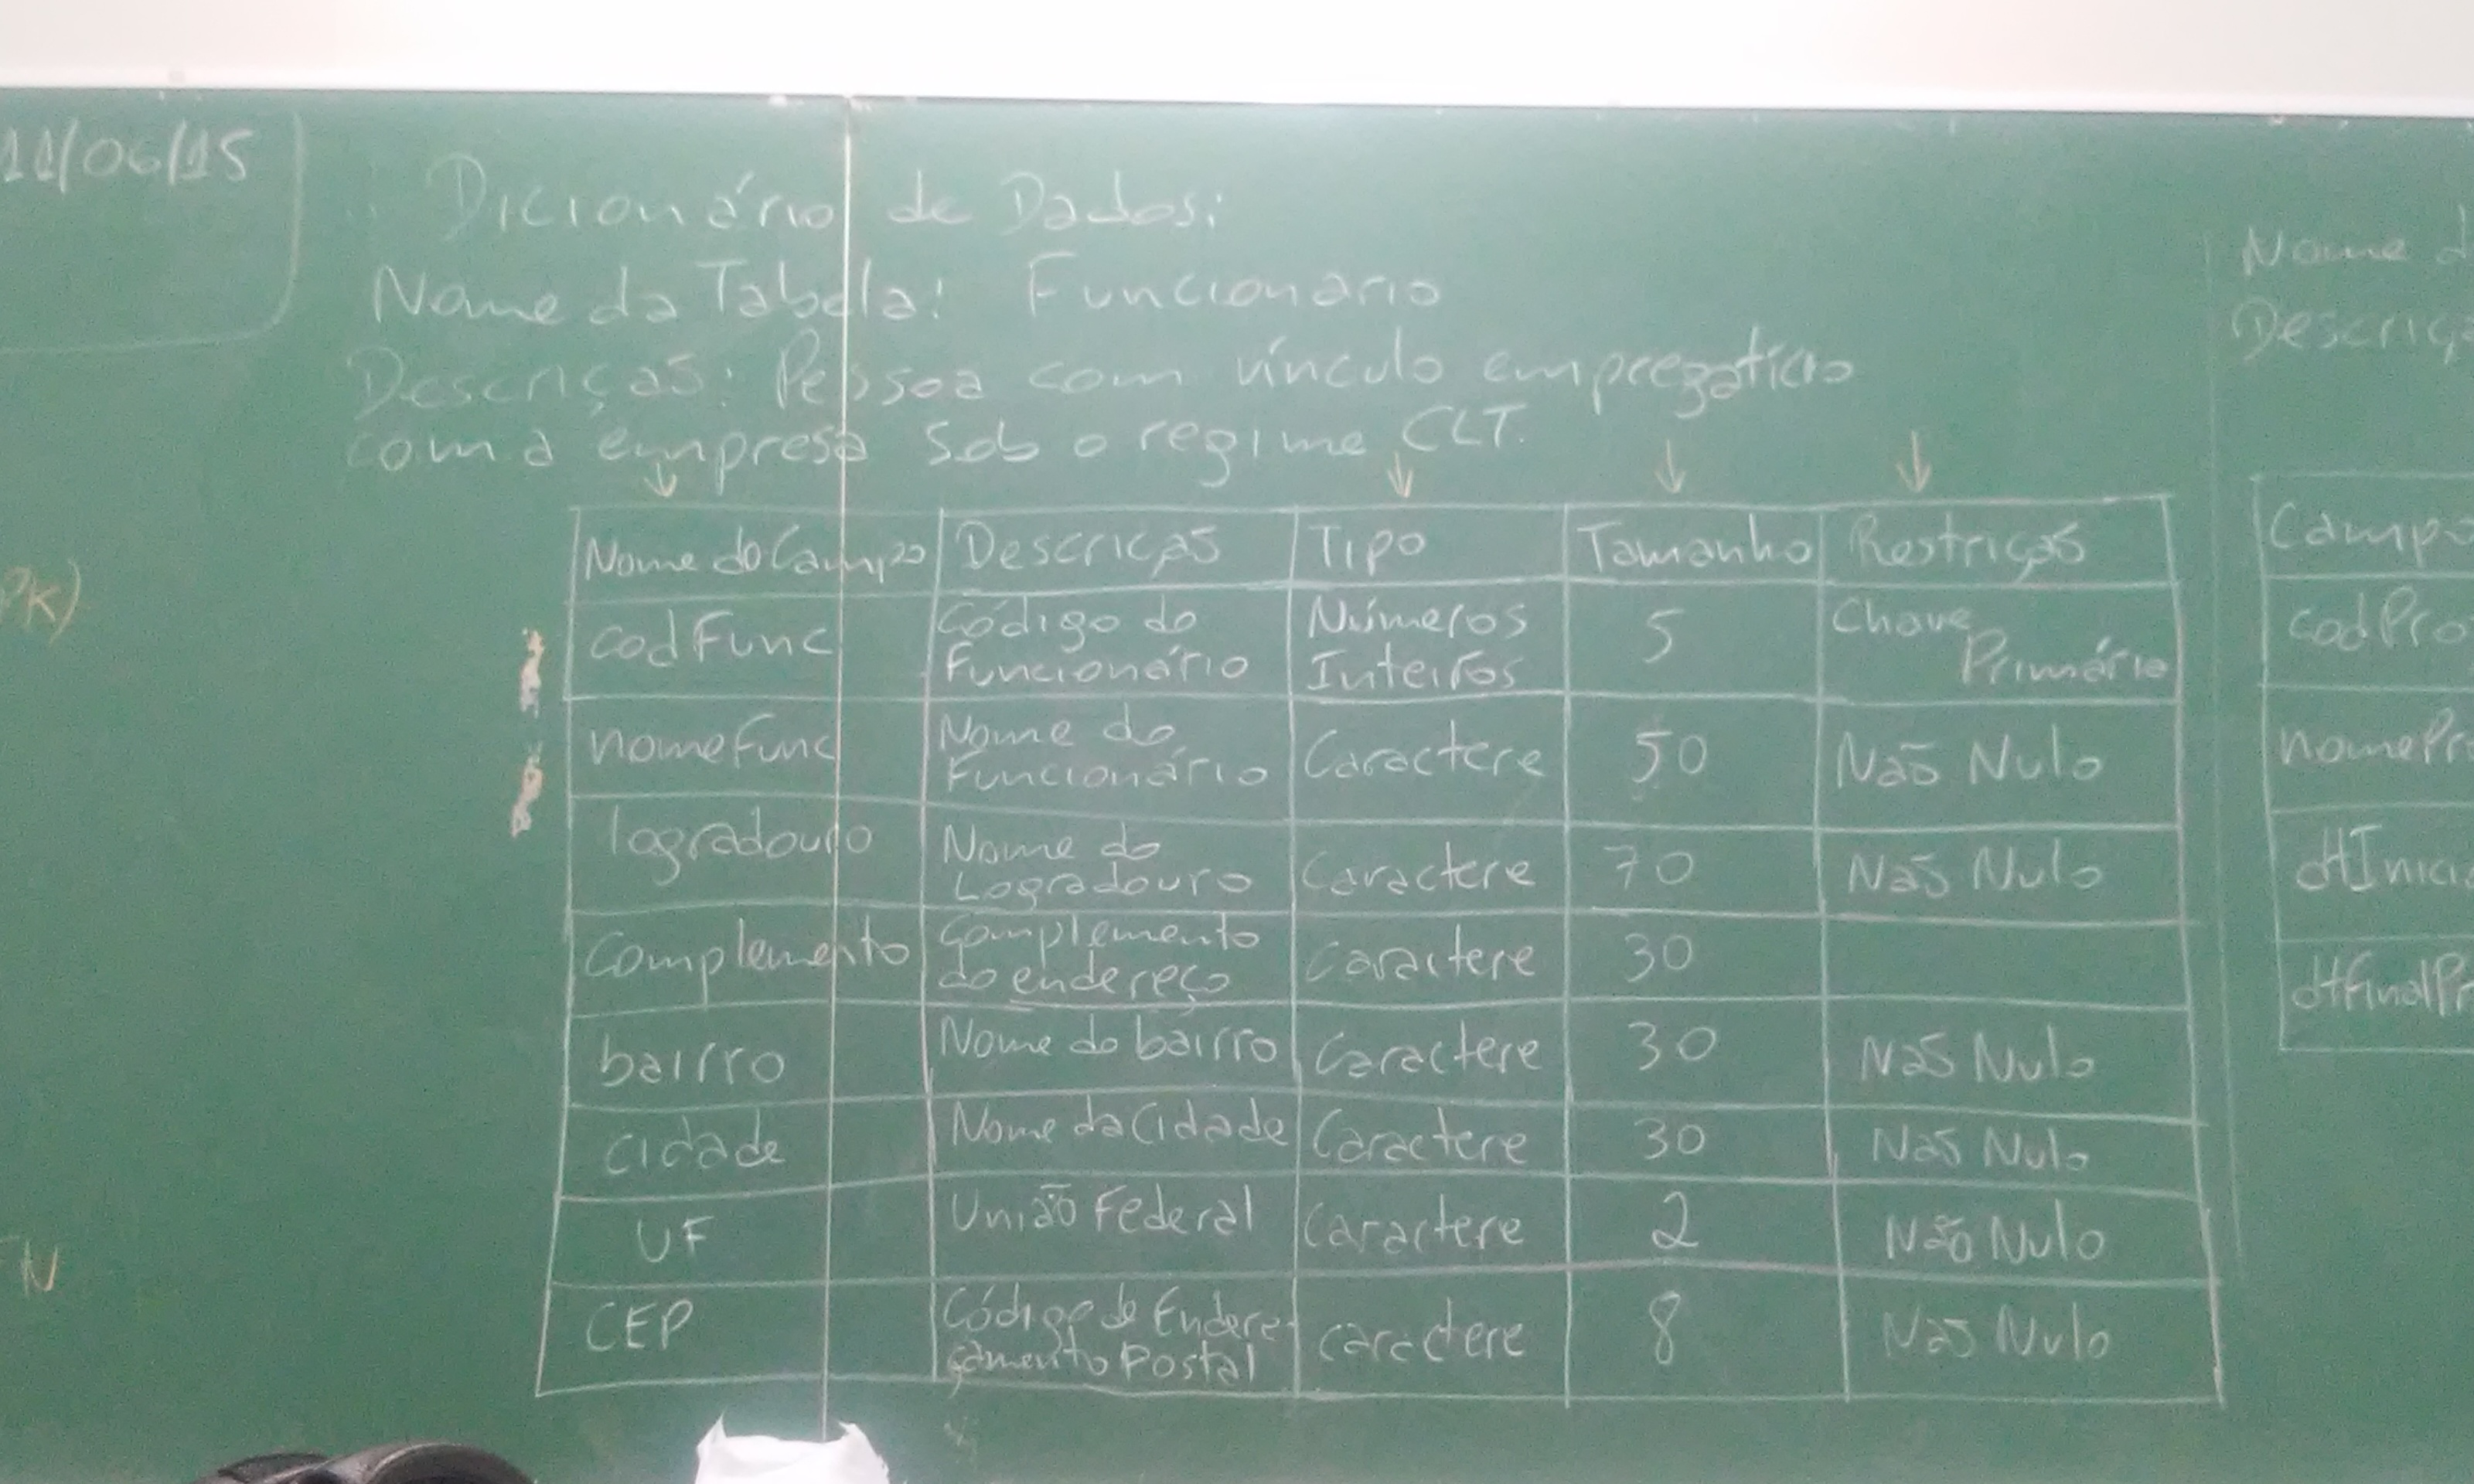 11/06/15
Dicionário de Dados:
Nome da Tabela: Funcionario
Descrição: Pessoa com vínculo empregatício
com a empresa sob o regime CLT.
Nome do Campo Descrição Tipo Tamanho Restrição
codFunc Código do Funcionário Números Inteiros 5 Chave Primária
nomeFunc Nome do Funcionário Caractere 50 Não Nulo
logradouro Nome do Logradouro Caractere 70 Não Nulo
Complemento Complemento do endereço Caractere 30
bairro Nome do bairro Caractere 30 Não Nulo
cidade Nome da Cidade Caractere 30 Não Nulo
UF União Federal Caractere 2 Não Nulo
CEP Código de Endere-
çamento Postal caractere 8 Não Nulo
PK)
FN
Nome d
Descriç
Campo
codPro
nomePro
dtInicio
dtFinalPr